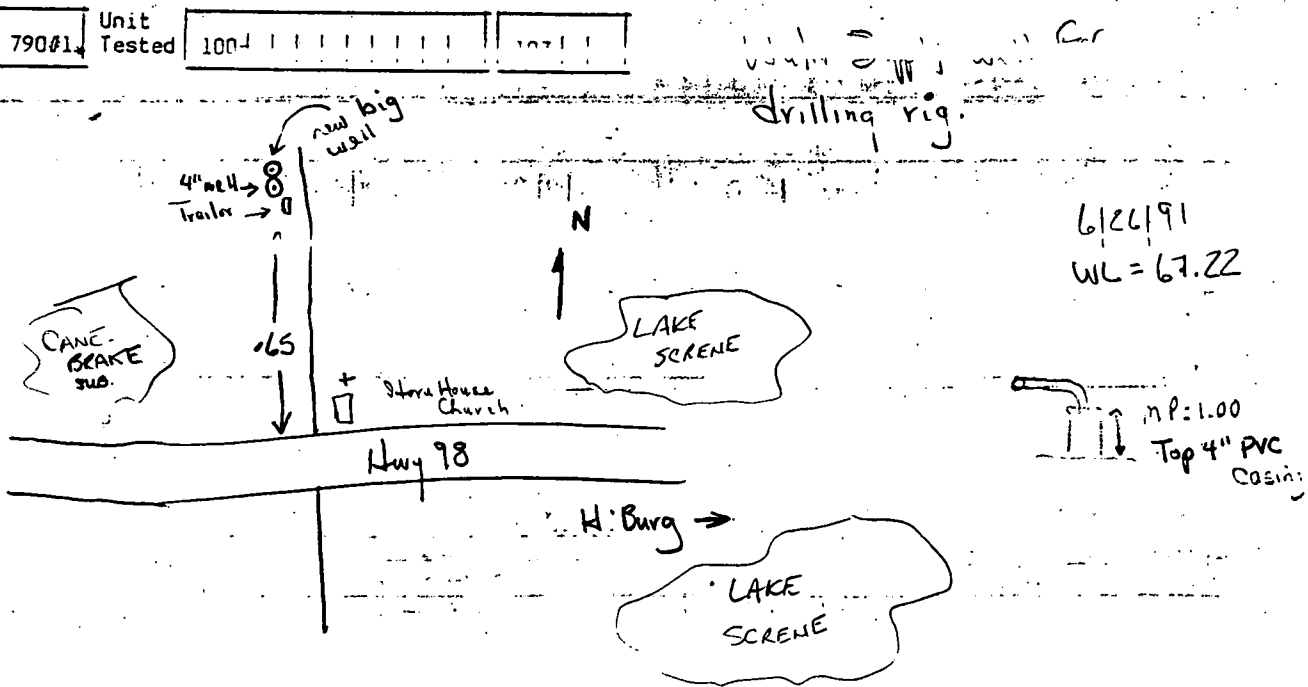 790#1
Unit
Tested
100
drilling rig.
new big
well
4" well →
Trailer →
N
6/26/91
WL = 67.22
CANE-
BRAKE
SUB.
.65
LAKE
SCRENE
Church
MP: 1.00
Top 4" PVC
Casin
Hwy 98
H'Burg →
LAKE
SCRENE